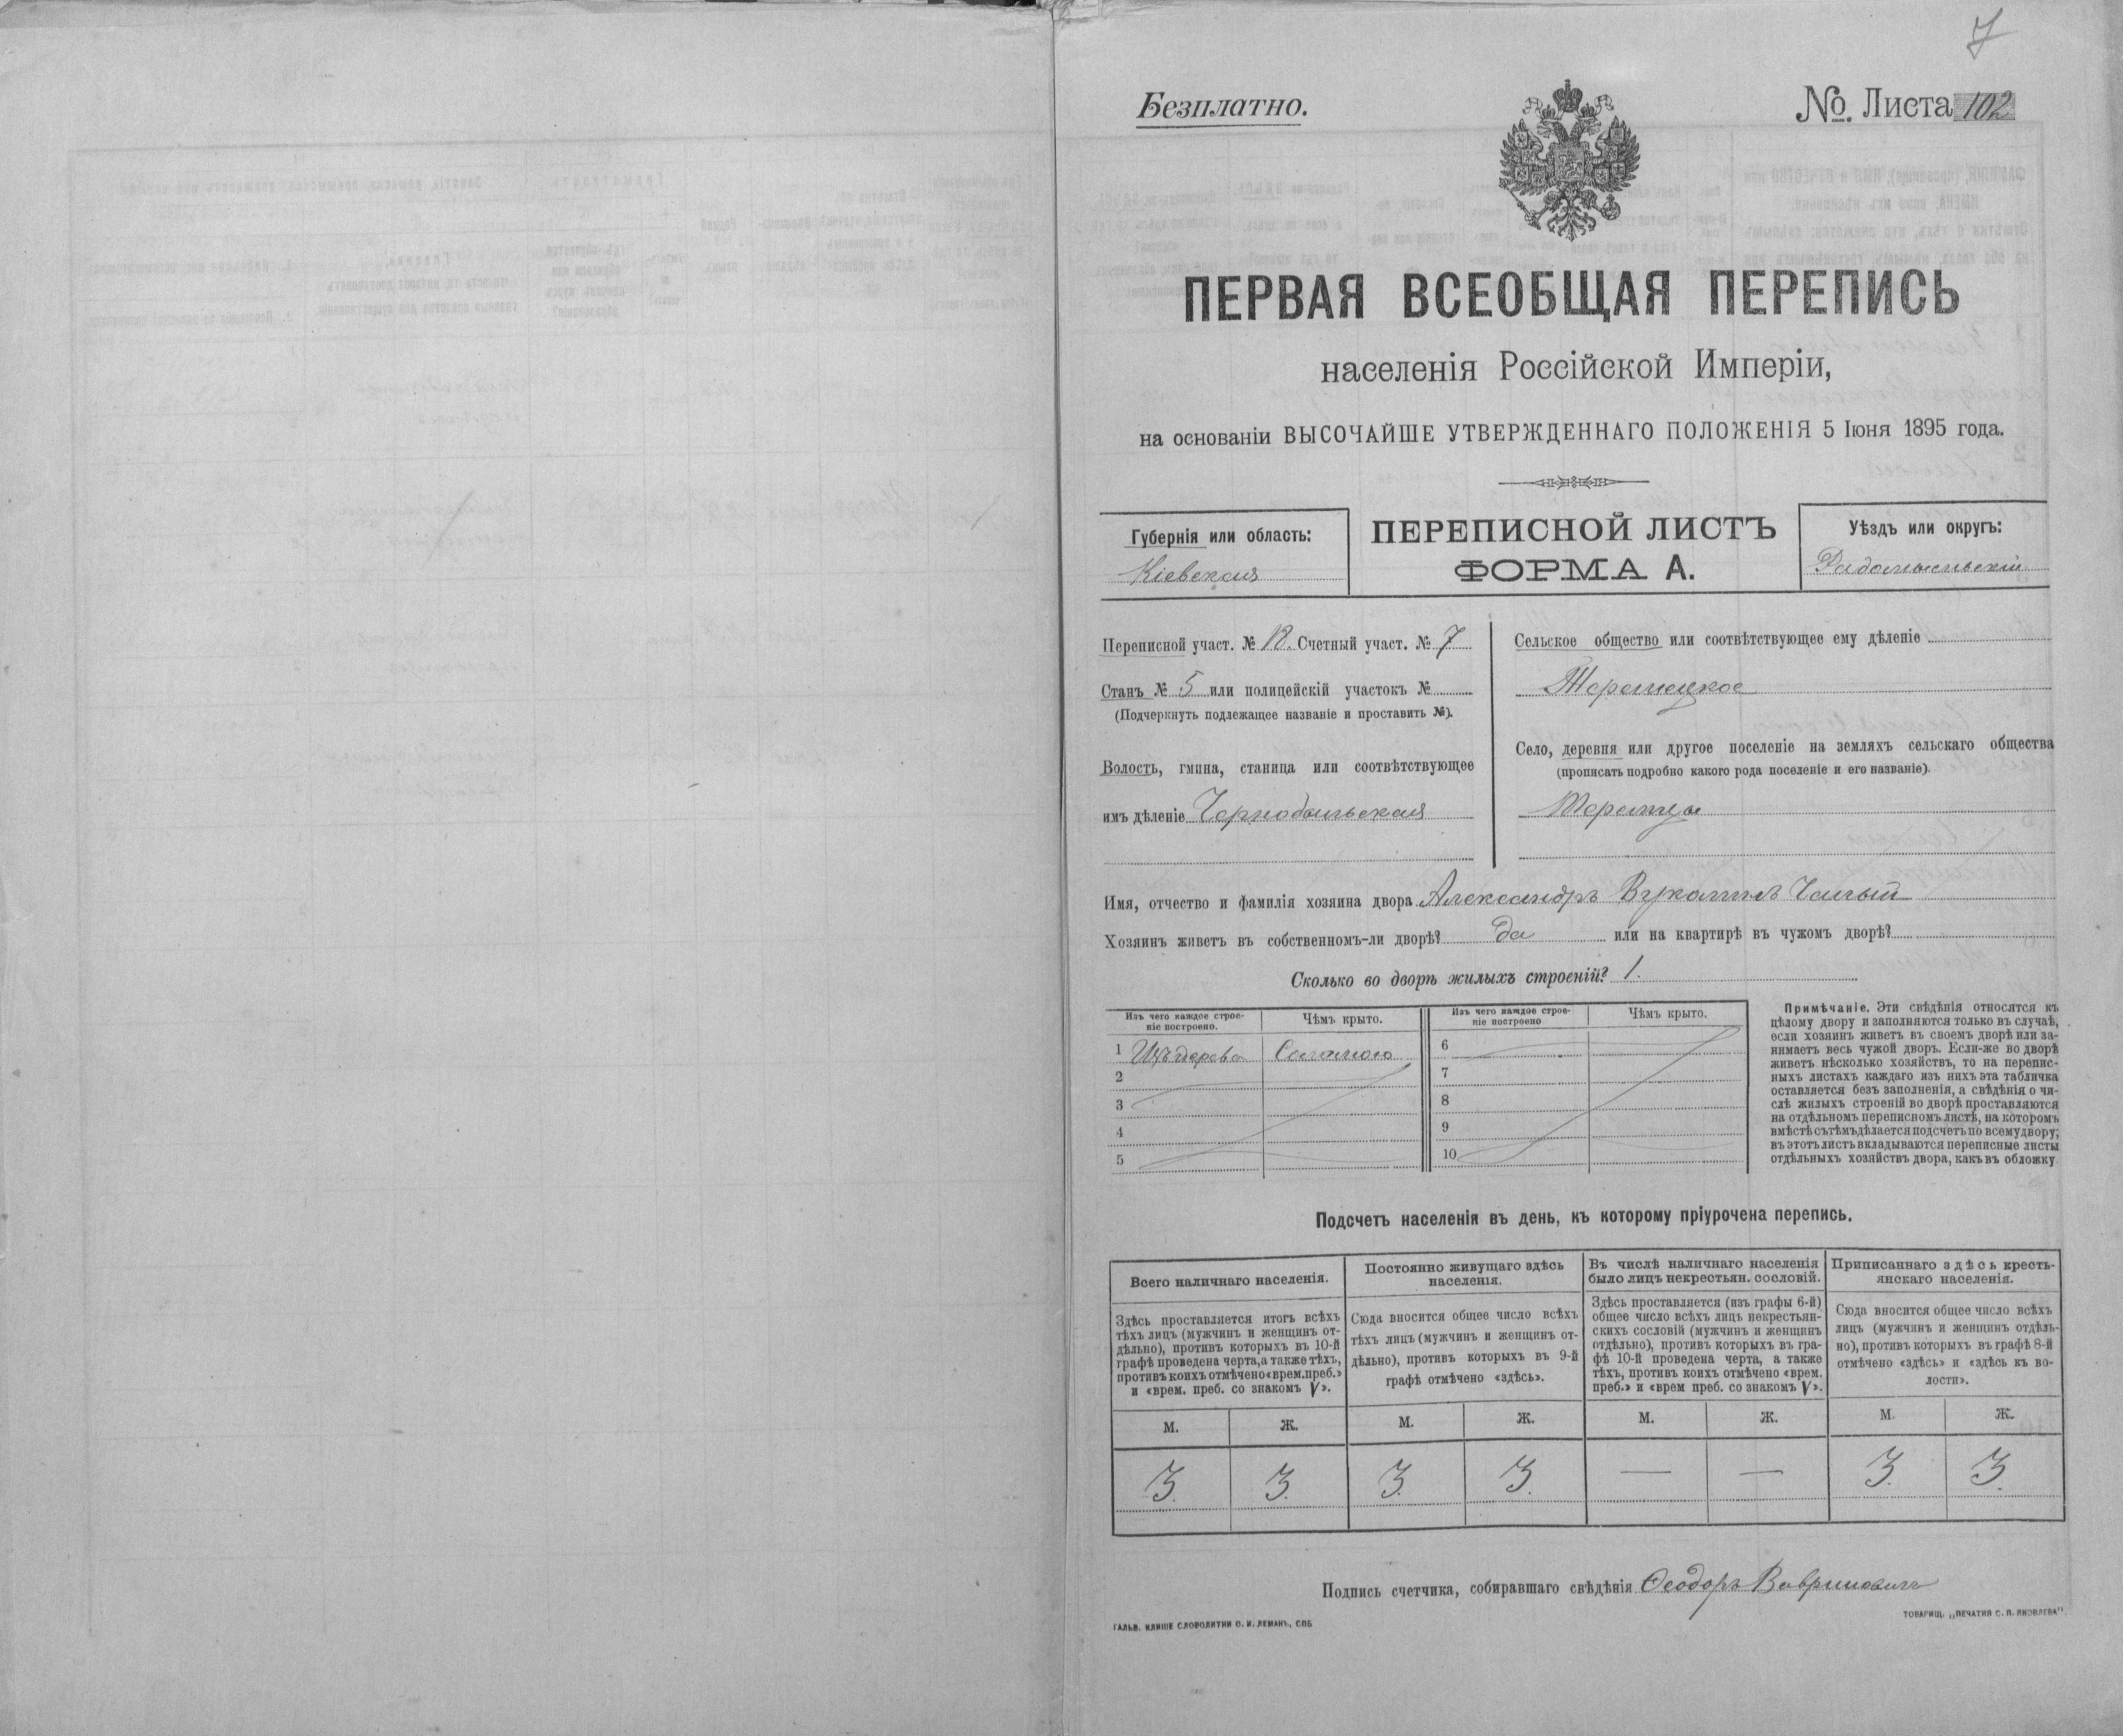 7
Безплатно.
№ Листа 102
ПЕРВАЯ ВСЕОБЩАЯ ПЕРЕПИСЬ
населенія Россійской Имперіи,
на основаніи ВЫСОЧАЙШЕ УТВЕРЖДЕННАГО ПОЛОЖЕНІЯ 5 Іюня 1895 года.
Губернія или область:
Кіевская
ПЕРЕПИСНОЙ ЛИСТЪ
ФОРМА А.
Уѣздъ или округъ:
Радомысльскій
Переписной участ. № 18. Счетный участ. № 7
Станъ № 5 или полицейскій участокъ №
(Подчеркнуть подлежащее названіе и проставить №).
Волость, гмина, станица или соотвѣтствующее
имъ дѣленіе Чернобыльская
Сельское общество или соотвѣтствующее ему дѣленіе
Теремецкое
Село, деревня или другое поселеніе на земляхъ сельскаго общества
(прописать подробно какого рода поселеніе и его названіе).
Теремцы
Имя, отчество и фамилія хозяина двора Александръ
Хозяинъ живетъ въ собственномъ-ли дворѣ? да или на квартирѣ въ чужомъ дворѣ?
Сколько во дворѣ жилыхъ строеній? 1.
Изъ чего каждое строе-
ніе построено.
Чѣмъ крыто.
Изъ чего каждое строе-
ніе построено
Чѣмъ крыто.
1 Изъ дерева Соломою
2
3
4
5
6
7
8
9
10
Примѣчаніе. Эти свѣдѣнія относятся къ
цѣлому двору и заполняются только въ случаѣ,
если хозяинъ живетъ въ своемъ дворѣ или за-
нимаетъ весь чужой дворъ. Если-же во дворѣ
живетъ нѣсколько хозяйствъ, то на перепис-
ныхъ листахъ каждаго изъ нихъ эта табличка
оставляется безъ заполненія, а свѣдѣнія о чи-
слѣ жилыхъ строеній во дворѣ проставляются
на отдѣльномъ переписномъ листѣ, на которомъ
вмѣстѣ съ тѣмъ дѣлается подсчетъ по всему двору;
въ этотъ листъ вкладываются переписные листы
отдѣльныхъ хозяйствъ двора, какъ въ обложку.
Подсчетъ населенія въ день, къ которому пріурочена перепись.
Всего наличнаго населенія.
Здѣсь проставляется итогъ всѣхъ
тѣхъ лицъ (мужчинъ и женщинъ от-
дѣльно), противъ которыхъ въ 10-й
графѣ проведена черта, а также тѣхъ,
противъ коихъ отмѣчено «врем. преб.»
и «врем. преб. со знакомъ V».
Постоянно живущаго здѣсь
населенія.
Сюда вносится общее число всѣхъ
тѣхъ лицъ (мужчинъ и женщинъ от-
дѣльно), противъ которыхъ въ 9-й
графѣ отмѣчено «здѣсь».
Въ числѣ наличнаго населенія
было лицъ некрестьян. сословій.
Здѣсь проставляется (изъ графы 6-й)
общее число всѣхъ лицъ некрестьян-
скихъ сословій (мужчинъ и женщинъ
отдѣльно), противъ которыхъ въ гра-
фѣ 10-й проведена черта, а также
тѣхъ, противъ коихъ отмѣчено «врем.
преб.» и «врем преб. со знакомъ V».
Приписаннаго здѣсь кресть-
янскаго населенія.
Сюда вносится общее число всѣхъ
лицъ (мужчинъ и женщинъ отдѣль-
но), противъ которыхъ въ графѣ 8-й
отмѣчено «здѣсь» и «здѣсь къ во-
лости».
М. Ж. М. Ж. М. Ж. М. Ж.
3. 3. 3. 3. — — 3. 3.
Подпись счетчика, собиравшаго свѣдѣнія Ѳеодоръ Вавриновичъ
ГАЛЬВ. КЛИШЕ СЛОВОЛИТНИ О. И. ЛЕМАНЪ, СПБ
ТОВАРИЩ. „ПЕЧАТНЯ С. П. ЯКОВЛЕВА“